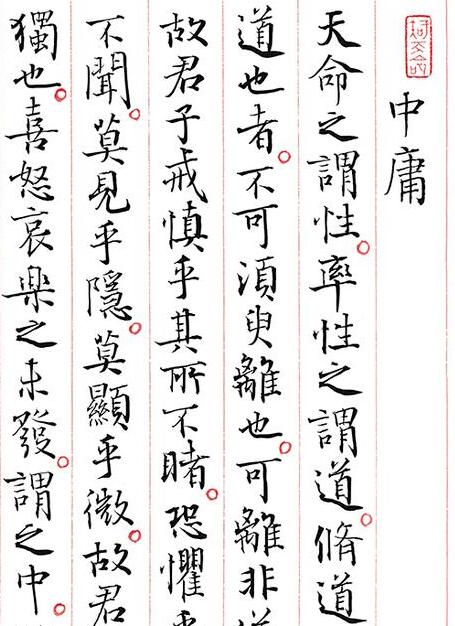 中庸
天命之謂性率性之謂道脩道
道也者不可須臾離也可離非道
故君子戒慎乎其所不睹恐懼乎
不聞莫見乎隱莫顯乎微故君
獨也喜怒哀樂之未發謂之中